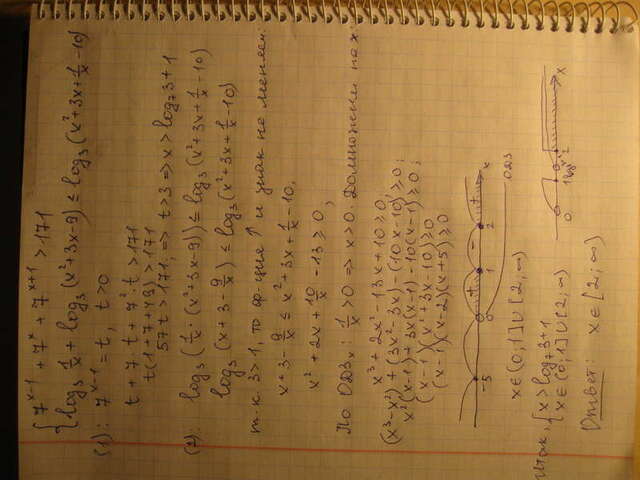 { 7^(x-1) + 7^x + 7^(x+1) > 171
{ log₃ 1/x + log₃ (x²+3x-9) ≤ log₃ (x²+3x+1/x-10)
(1): 7^(x-1) = t, t>0
t + 7·t + 7²·t > 171
t(1+7+49) > 171
57t > 171, => t > 3 => x > log₇3+1
(2): log₃ (1/x · (x²+3x-9)) ≤ log₃ (x²+3x+1/x-10)
log₃ (x+3-9/x) ≤ log₃ (x²+3x+1/x-10)
т.к. 3>1, то ф-ция ↑ и знак не меняем:
x+3-9/x ≤ x²+3x+1/x-10,
x²+2x+10/x-13 ≥ 0,
По ОДЗₓ: 1/x > 0 => x>0. Домножаем на x
x³+2x²-13x+10 ≥ 0;
(x³-x²)+(3x²-3x)-(10x-10) ≥ 0;
x²(x-1)+3x(x-1)-10(x-1) ≥ 0;
(x-1)(x²+3x-10) ≥ 0
(x-1)(x-2)(x+5) ≥ 0
-5 0 + 1 - 2 + x
ОДЗ
x∈(0;1]∪[2;∞)
Итак, { x>log₇3+1
{ x∈(0;1]∪[2;∞)
0 1 log₇3+1 2 x
Ответ: x∈[2;∞)